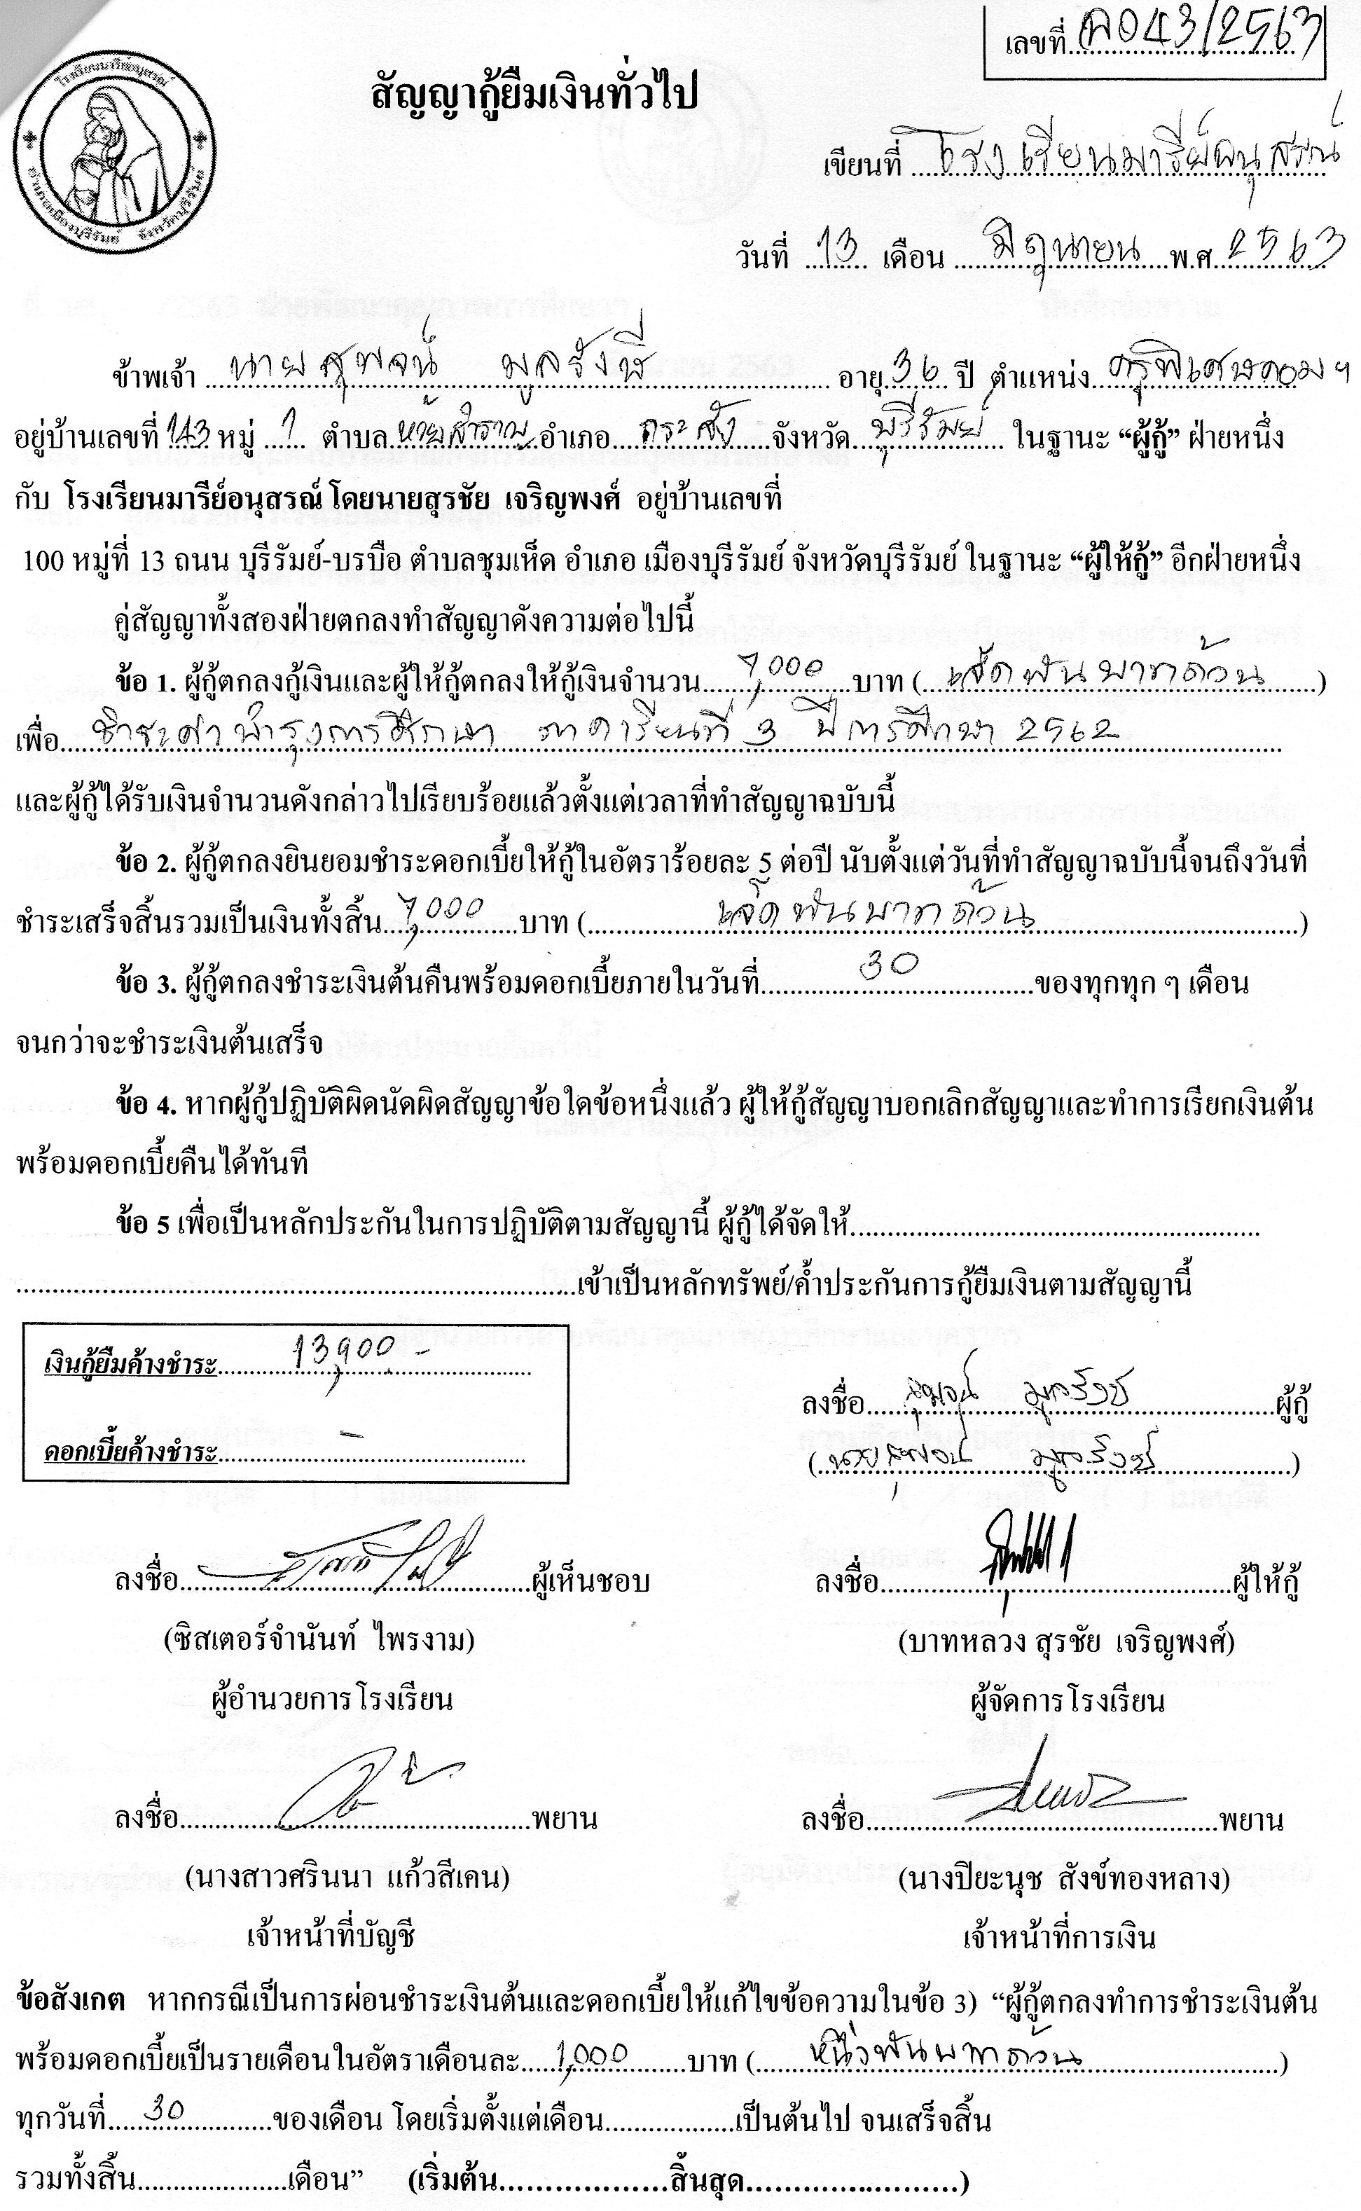 เลขที่ A043/2563
โรงเรียนมารีย์อนุสรณ์
อำเภอเมืองบุรีรัมย์ จังหวัดบุรีรัมย์
สัญญากู้ยืมเงินทั่วไป
เขียนที่ โรงเรียนมารีย์อนุสรณ์
วันที่ 13 เดือน มิถุนายน พ.ศ. 2563
ข้าพเจ้า นายสุพจน์ มูลรังษี อายุ 36 ปี ตำแหน่ง ครูพิเศษคอมฯ
อยู่บ้านเลขที่ 143 หมู่ 1 ตำบล ห้วยสำราญ อำเภอ กระสัง จังหวัด บุรีรัมย์ ในฐานะ “ผู้กู้” ฝ่ายหนึ่ง
กับ โรงเรียนมารีย์อนุสรณ์ โดยนายสุรชัย เจริญพงศ์ อยู่บ้านเลขที่
100 หมู่ที่ 13 ถนน บุรีรัมย์-บรบือ ตำบลชุมเห็ด อำเภอ เมืองบุรีรัมย์ จังหวัดบุรีรัมย์ ในฐานะ “ผู้ให้กู้” อีกฝ่ายหนึ่ง
คู่สัญญาทั้งสองฝ่ายตกลงทำสัญญาดังความต่อไปนี้
ข้อ 1. ผู้กู้ตกลงกู้เงินและผู้ให้กู้ตกลงให้กู้เงินจำนวน 7,000 บาท ( เจ็ดพันบาทถ้วน )
เพื่อ ชำระค่าบำรุงการศึกษา ภาคเรียนที่ 3 ปีการศึกษา 2562
และผู้กู้ได้รับเงินจำนวนดังกล่าวไปเรียบร้อยแล้วตั้งแต่เวลาที่ทำสัญญาฉบับนี้
ข้อ 2. ผู้กู้ตกลงยินยอมชำระดอกเบี้ยให้กู้ในอัตราร้อยละ 5 ต่อปี นับตั้งแต่วันที่ทำสัญญาฉบับนี้จนถึงวันที่
ชำระเสร็จสิ้นรวมเป็นเงินทั้งสิ้น 7,000 บาท ( เจ็ดพันบาทถ้วน )
ข้อ 3. ผู้กู้ตกลงชำระเงินต้นคืนพร้อมดอกเบี้ยภายในวันที่ 30 ของทุกทุก ๆ เดือน
จนกว่าจะชำระเงินต้นเสร็จ
ข้อ 4. หากผู้กู้ปฏิบัติผิดนัดผิดสัญญาข้อใดข้อหนึ่งแล้ว ผู้ให้กู้สัญญาบอกเลิกสัญญาและทำการเรียกเงินต้น
พร้อมดอกเบี้ยคืนได้ทันที
ข้อ 5 เพื่อเป็นหลักประกันในการปฏิบัติตามสัญญานี้ ผู้กู้ได้จัดให้
เข้าเป็นหลักทรัพย์/ค้ำประกันการกู้ยืมเงินตามสัญญานี้
เงินกู้ยืมค้างชำระ 13,900.-
ดอกเบี้ยค้างชำระ -
ลงชื่อ สุพจน์ มูลรังษี ผู้กู้
( นายสุพจน์ มูลรังษี )
ลงชื่อ ผู้เห็นชอบ ลงชื่อ ผู้ให้กู้
(ซิสเตอร์จำนันท์ ไพรงาม) (บาทหลวง สุรชัย เจริญพงศ์)
ผู้อำนวยการโรงเรียน ผู้จัดการโรงเรียน
ลงชื่อ พยาน ลงชื่อ พยาน
(นางสาวศรินนา แก้วสีเคน) (นางปิยะนุช สังข์ทองหลาง)
เจ้าหน้าที่บัญชี เจ้าหน้าที่การเงิน
ข้อสังเกต หากกรณีเป็นการผ่อนชำระเงินต้นและดอกเบี้ยให้แก้ไขข้อความในข้อ 3) “ผู้กู้ตกลงทำการชำระเงินต้น
พร้อมดอกเบี้ยเป็นรายเดือนในอัตราเดือนละ 1,000 บาท ( หนึ่งพันบาทถ้วน )
ทุกวันที่ 30 ของเดือน โดยเริ่มตั้งแต่เดือน เป็นต้นไป จนเสร็จสิ้น
รวมทั้งสิ้น เดือน” (เริ่มต้น สิ้นสุด )